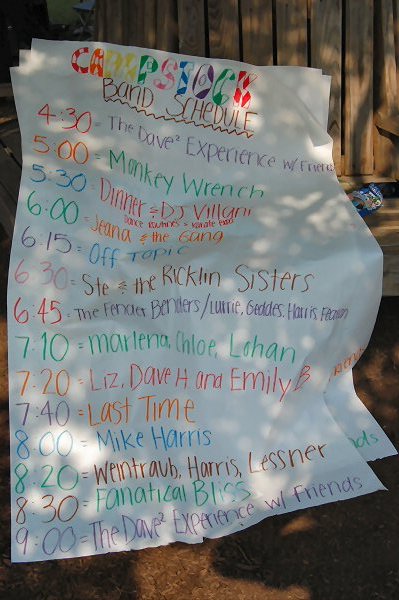 CAMPSTOCK
BAND SCHEDULE
4:30 = The Dave² Experience w/ Friends
5:00 = Monkey Wrench
5:30 = Dinner & DJ Villani
Dance Routines & Karate Expo
6:00 = Jeana & the Gang
6:15 = Off Topic
6:30 = Ste & the Ricklin Sisters
6:45 = The Fender Benders/Lurrie, Geddes, Harris
7:10 = Marlena, Chloe, Lohan
7:20 = Liz, Dave H and Emily B
7:40 = Last Time
8:00 = Mike Harris
8:20 = Weintraub, Harris, Lessner
8:30 = Fanatizal Bliss
9:00 = The Dave² Experience w/ Friends